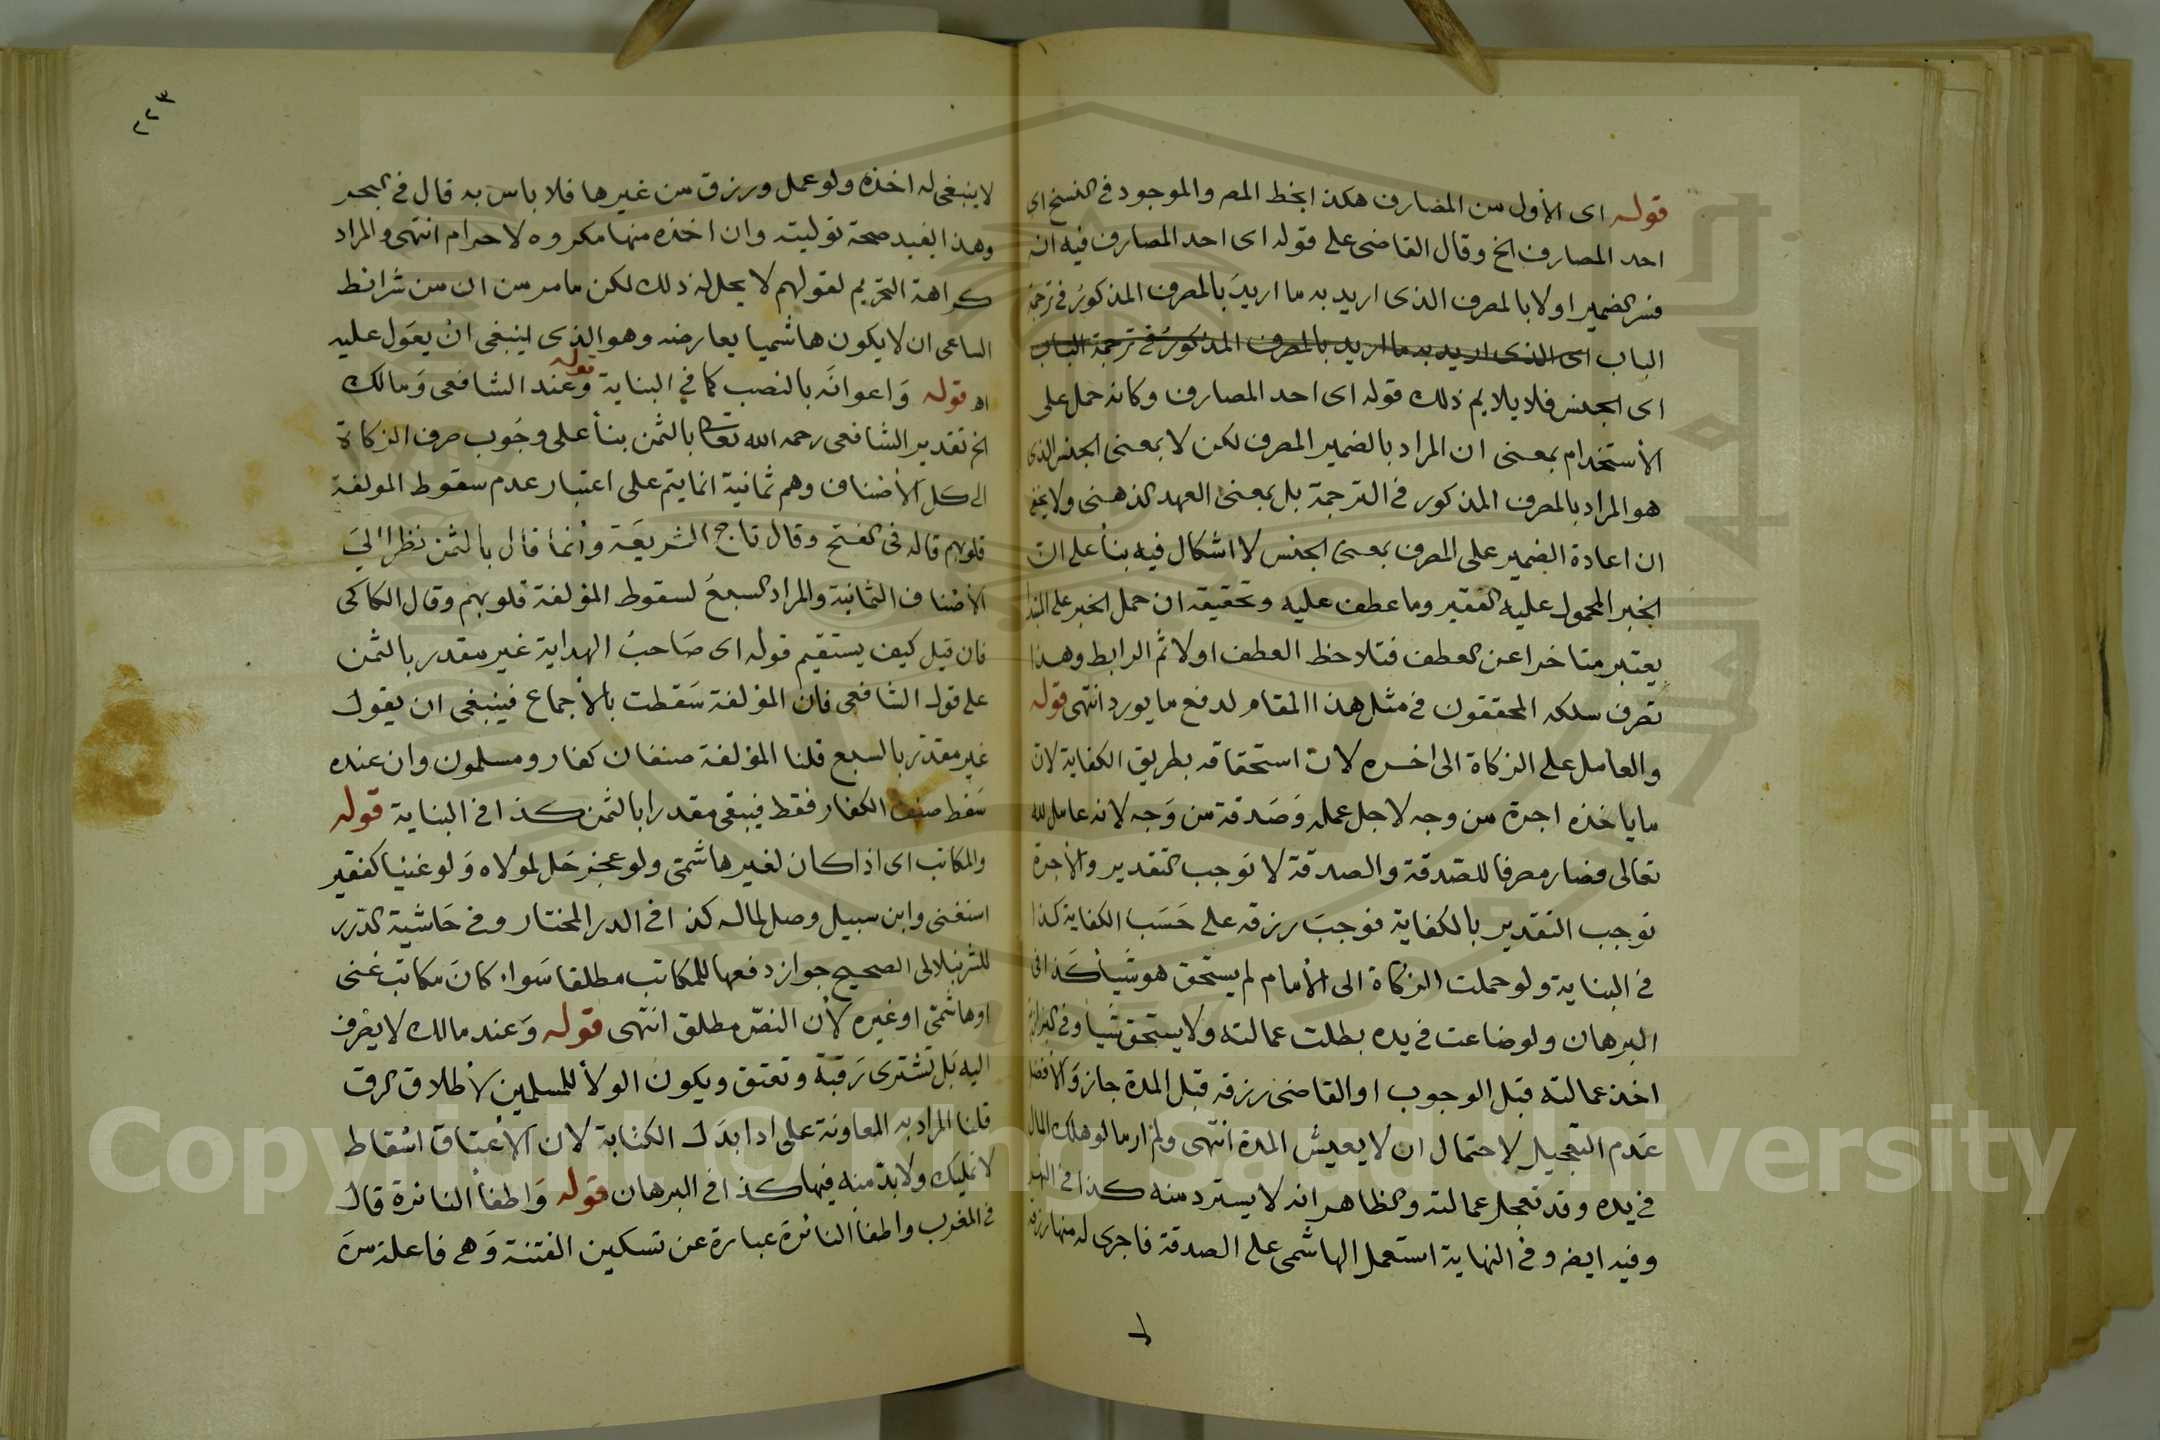 قوله اى الأول من المصارف هكذا بخط المص والموجود فى النسخ اى
احد المصارف الخ وقال القاضى على قوله اى احد المصارف فيه ان
فسر الضمير اولا بالمصرف الذى اريد به ما اريد بالمصرف المذكور فى ترجمة
الباب اى الذى اريد به ما اريد بالمصرف المذكور فى ترجمة الباب
اى الجنس فلا يلايم ذلك قوله اى احد المصارف وكانه حمل على
الأستخدام بمعنى ان المراد بالضمير المصرف لكن لا بمعنى الجنس الذى
هو المراد بالمصرف المذكور فى الترجمة بل بمعنى العهد الذهنى ولا يخفى
ان اعادة الضمير على المصرف بمعنى الجنس لا اشكال فيه بنأ على ان
الخبر المحمول عليه الفقير وما عطف عليه وتحقيقه ان حمل الخبر على المبتدا
يعتبر متاخرا عن العطف فتلاحظ العطف اولا ثم الرابط وهذا
تصرف سلكه المحققون فى مثل هذا المقام لدفع ما يورد انتهى قوله
والعامل على الزكاة الى اخره لان استحقاقه بطريق الكفاية لان
ما ياخذه اجرة من وجه لاجل عمله وَصَدقة من وَجه لانه عامل لله
تعالى فصار مصرفا للصّدقة والصدقة لا توجب التقدير والأجرة
توجب التقدير بالكفاية فوجبَ رزقه على حَسَب الكفاية كذا
فى البناية ولو حملت الزكاة الى الأمام لم يستحق هو شيأ كَذا فى
البرهان ولو ضاعت فى يده بطلت عمالته ولا يستحق شيأ وفى البزازية
اخذ عمالته قبل الوجوب او القاضى رزقه قبل المدة جاز وَالأفضل
عَدم التعجيل لاحتمال ان لا يعيش المدة انتهى ولم ار ما لو هلك المال
فى يده وقد تعجل عمالته والظاهر انه لا يسترد منه كذا فى النهر
وفيه ايضا وفى النهاية استعمل الهاشمى على الصدقة فاجرى له منها رزقه
٢٢٣
لا ينبغى له اخذه ولو عمل ورزق من غيرها فلا باس به قال فى البحر
وهذا يفيد صحة توليته وان اخذه منها مكروه لا حرام انتهى والمراد
كراهة التحريم لقولهم لا يحل له ذلك لكن ما مر من ان من شرائط
الساعى ان لا يكون هاشميا يعارضه وهو الذى ينبغى انْ يعوَل عليه
اه قوله وَاعوانَه بالنصب كما فى البناية قوله وَعند الشافعى وَمالك
الخ تقدير الشافعى رحمه الله تعالى بالثمن بنأ على وجُوب صرف الزكاة
الى كل الأصناف وهم ثمانية انما يتم على اعتبار عدم سقوط المولفة
قلوبهم قاله فى الفتح وقال تاج الشريعَة وانما قال بالثمن نظرا الىَ
الأصناف الثمانية والمراد السبعُ لسقوط المؤلفة قلوبهم وقال الكاكى
فان قيل كيف يستقيم قوله اى صَاحبُ الهداية غير مقدر بالثمن
على قول الشافعى فان المؤلفة سَقطت بالأجماع فينبغى ان يقول
غير مقدّر بالسبع قلنا المؤلفة صنفان كفار ومسلمون وان عنده
سَقط صنف الكفار فقط فيبقى مقدرا بالثمن كذا فى البناية قوله
والمكاتب اى اذا كان لغير هاشمّى ولو عجز حَل لمولاه وَلو غنيا كفقير
استغنى وابن سبيل وصل لماله كذا فى الدر المختار وفى حَاشية الدرر
للشرنبلالى الصحيح جواز دفعها للمكاتب مطلقا سَواء كانَ مكاتب غنى
او هاشمّى او غيره لأن النصّ مطلق انتهى قوله وَعند مالك لا يصْرف
اليه بَل تشترى رَقبَة وتعتق ويكون الولأ للمسلمين لأطلاق الرق
قلنا المراد به المعاونة على ادا بدَل الكتابة لان الأعتاق اسْقاط
لا تمليك ولا بدّ منه فيها كذا فى البرهان قوله وَاطفأ النائرة قال
فى المغرب واطفأ النائرة عبارة عن تسكين الفتنة وَهى فاعلة منَ
Copyright © King Saud University